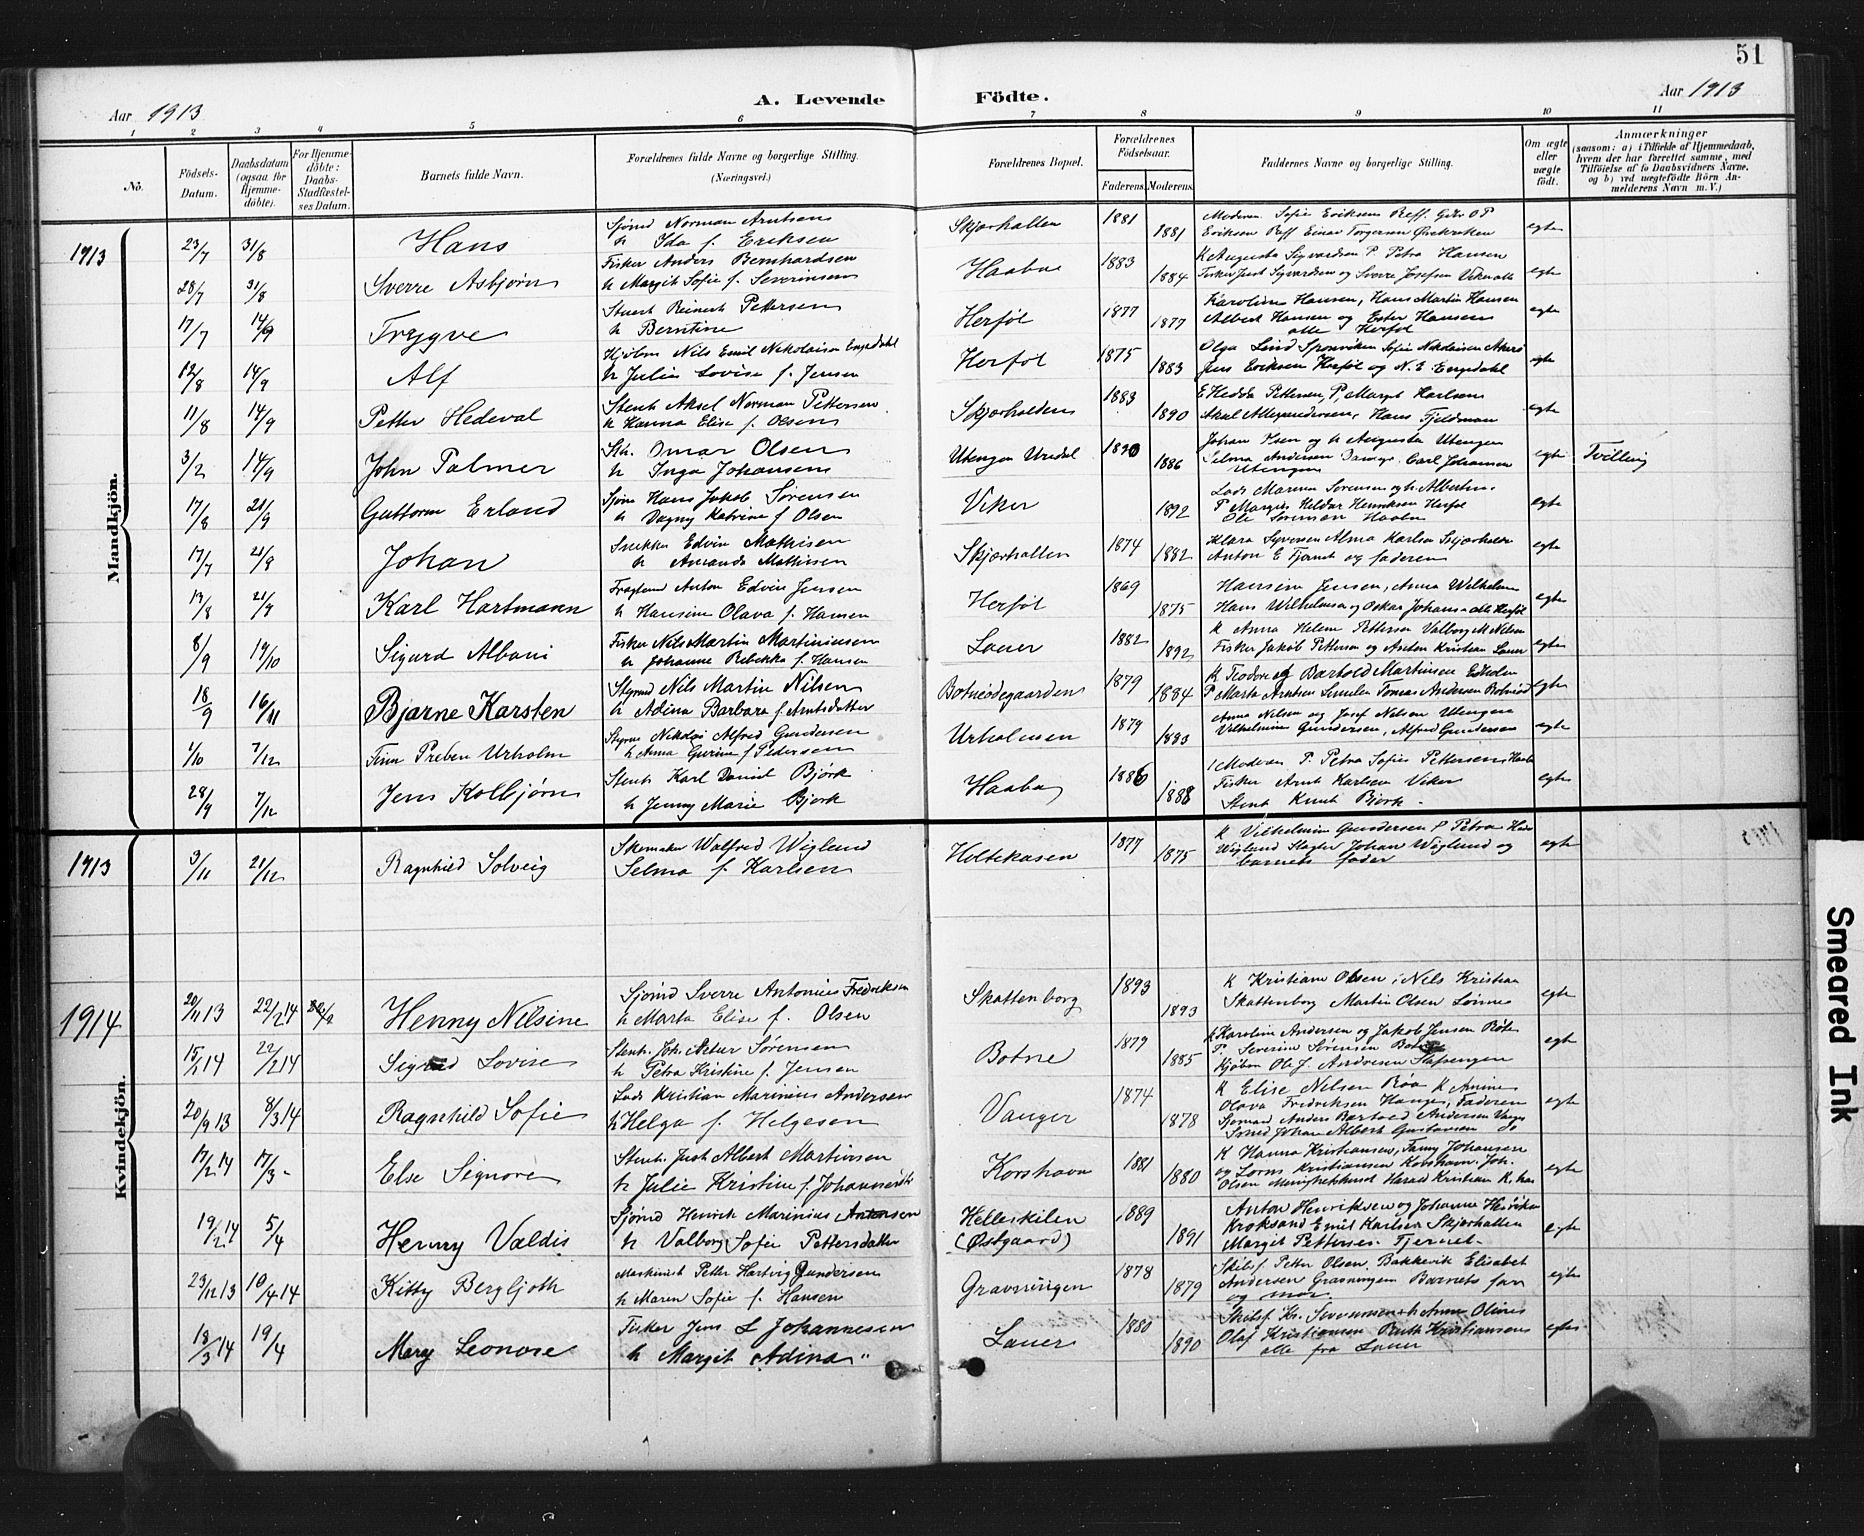 51
Aar 1913
A. Levende Födte.
Aar 1913
1 2 3 4 5 6 7 8 9 10 11
No.
Födsels-Datum.
Daabsdatum (ogsaa for Hjemme-döbte).
For Hjemme-döbte: Daabs-Stadfæstel-ses Datum.
Barnets fulde Navn.
Forældrenes fulde Navne og borgerlige Stilling. (Næringsvei.)
Forældrenes Bopæl.
Forældrenes Födselsaar.
Faderens.
Moderens.
Faddernes Navne og borgerlige Stilling.
Om ægte eller uægte födt.
Anmærkninger
(saasom: a) i Tilfælde af Hjemmedaab, hvem der har forrettet samme, med Tilföielse af to Daabsvidners Navne, og b) ved uægtefödte Börn An-melderens Navn m. V.)
Mandkjön.
1913 23/7 31/8 Hans
Sjømd Norman Arntsen
h Ida f. Eriksen
Skjærhallen 1881 1881
Moderen Sofie Eriksen
Eriksen Einar Torgersen
egte
28/7 31/8 Sverre Asbjørn
Fisker Anders Bernhardsen
h Margit Sofie f. Severinsen
Haabue 1883 1884
K Augusta Sigvardsen P Petra Hansen
og Sverre Josefsen
egte
17/7 14/9 Trygve
Stenh Reinert Pettersen
h Berntine
Herføl 1877 1877
Karoline Hansen, Hans Martin Hansen
Albert Hansen og Ester Hansen
alle Herføl
egte
12/8 14/9 Alf
Nils Emil Nikolaisen Engedahl
h Julie Lovise f. Jensen
Herføl 1875 1883
Olga Lind Sponviken Sofie Nikolaisen
Jens Eriksen Herføl og N. E. Engedahl
egte
11/8 14/9 Petter Hedeval
Stenh Aksel Norman Pettersen
h Hanna Elise f. Olsen
Skjærhalden 1883 1890
Hedda Pettersen, P. Margit Karlsen
Hans Fjeldman
egte
3/2 14/9 John Palmer
Sth. Omar Olsen
h Inga Johansen
Utengen Urdal 1890 1886
Johan Olsen og h Augusta Utengen
Selma Andersen Carl Johansen
Utengen
egte Tvilling
17/8 21/9 Guttorm Erland
Sjøm Hans Jakob Sørensen
h Dagny Katrine f Olsen
Viker 1892
Lods Sørensen og h. Albertine
P Margit Henriksen Herføl
Ole Sørensen
egte
17/7 21/9 Johan
Snekker Edvin Mathisen
h Amanda Mathisen
Skjærhallen 1874 1882
Klara Syversen Alma Karlsen Skjærhallen
Anton E og faderen
egte
13/8 21/9 Karl Hartmann
Anton Edvin Jensen
h Hansine Olava f. Hansen
Herføl 1869 1875
Hansine Jensen, Anna Wilhelmsen
Hans Wilhelmsen og Oskar Johansen alle Herføl
egte
8/9 19/10 Sigurd Albani
Fisker Nils Martin Martiniusen
h Johanne Rebekka f. Hansen
Lauer 1882 1892
K Anna Helene Pettersen Valborg M Nilsen
Fisker Jakob Pettersen og Anton Kristian Lauer
egte
18/9 16/11 Bjarne Karsten
Styrmd Nils Martin Nilsen
h Adina Barbara f. Arntsdatter
Botneødegaarden 1879 1884
Bartold Martinsen
P Marta Arntsen Tomas Andersen
egte
1/10 7/12 Finn Preben Urholm
Styrm Nikolai Alfred Gundersen
h Anna Gurine f Pedersen
Urholmen 1879 1883
Anna Nilsen og Josef Nilsen Utengen
Vilhelmine Gundersen, Alfred Gundersen
egte
28/9 7/12 Jens Kolbjørn
Stenh Karl David Bjørk
h Jenny Marie Bjørk
Haabu 1886 1888
Moderen P. Petra Sofie Pettersen
Fisker Arnt Karlsen Viker
Stenh Knut Bjørk.
egte
Kvindekjön.
1913 3/11 21/12 Ragnhild Solveig
Skomaker Walfred Wiglund
Selma f. Karlsen
Holtekasen 1877 1875
K Vilhelmine Gundersen P Petra
Wiglund Slagter Johan Wiglund og
barnets fader
egte
1914 20/11 13 22/2 14 Henny Nilsine
Sjømd Sverre Antonius Fredriksen
h Marta Elise f. Olsen
Skattenborg 1893 1893
K Kristiane Olsen, Nils Kristian
Skattenborg Martin Olsen
egte
15/1 14 22/2 14 Sigrid Lovise
Stenh. Joh. Artur Sørensen
h Petra Kristine f. Jensen
Botne 1879 1885
K Karoline Andersen og Jakob Jensen
P. Severine Sørensen Botne
Kjøbm Ole J. Andresen
egte
20/9 13 8/3 14 Ragnhild Sofie
Lods Kristian Marinius Andersen
h Helga f. Helgesen
Vauger 1874 1878
K Elise Nilsen Røa K Anine
Olava Fredriksen Hauge, Faderen
Sjømand Anders Bartold Andersen
Johan Albert Gustavsen do
egte
17/2 14 17/3 - Else Signore
Stenh. Just Albert Martinsen
h Julie Kristine f. Johannesdtr
Korshavn 1881 1880
K Hanna Kristiansen, Fanny Johansen
og Lorns Kristiansen Korshavn, Joh.
Olsen Menighedshuset Harald Kristian K.havn
egte
19/2 14 5/4 Henny Valdis
Sjømd Henrik Marinius Antonsen
h Valborg Sofie Pettersdatter
Helleskilen
(Østgaard) 1889 1891
Anton Henriksen og Johanne Henriksen
Kroksand Emil Karlsen Skjærhallen
Margit Pettersen Tjernet.
egte
23/12 13 10/4 14 Kitty Bergljoth
Maskinist Petter Hartvig Gundersen
h Maren Sofie f. Hansen
Gravningen 1878 1879
Skibsf. Petter Olsen, Bakkevik Elisabet
Andersen Gravningen Barnets far
og mor.
egte
18/3 14 19/4 Mary Leonore
Fisker Jens L Johannesen
h Margit Adina "
Lauer 1880 1890
Skibsf. Kr. Severinsen h Anne Oline
Olaf Kristiansen Ruth Kristiansen
alle fra Lauer
egte
Smeared Ink